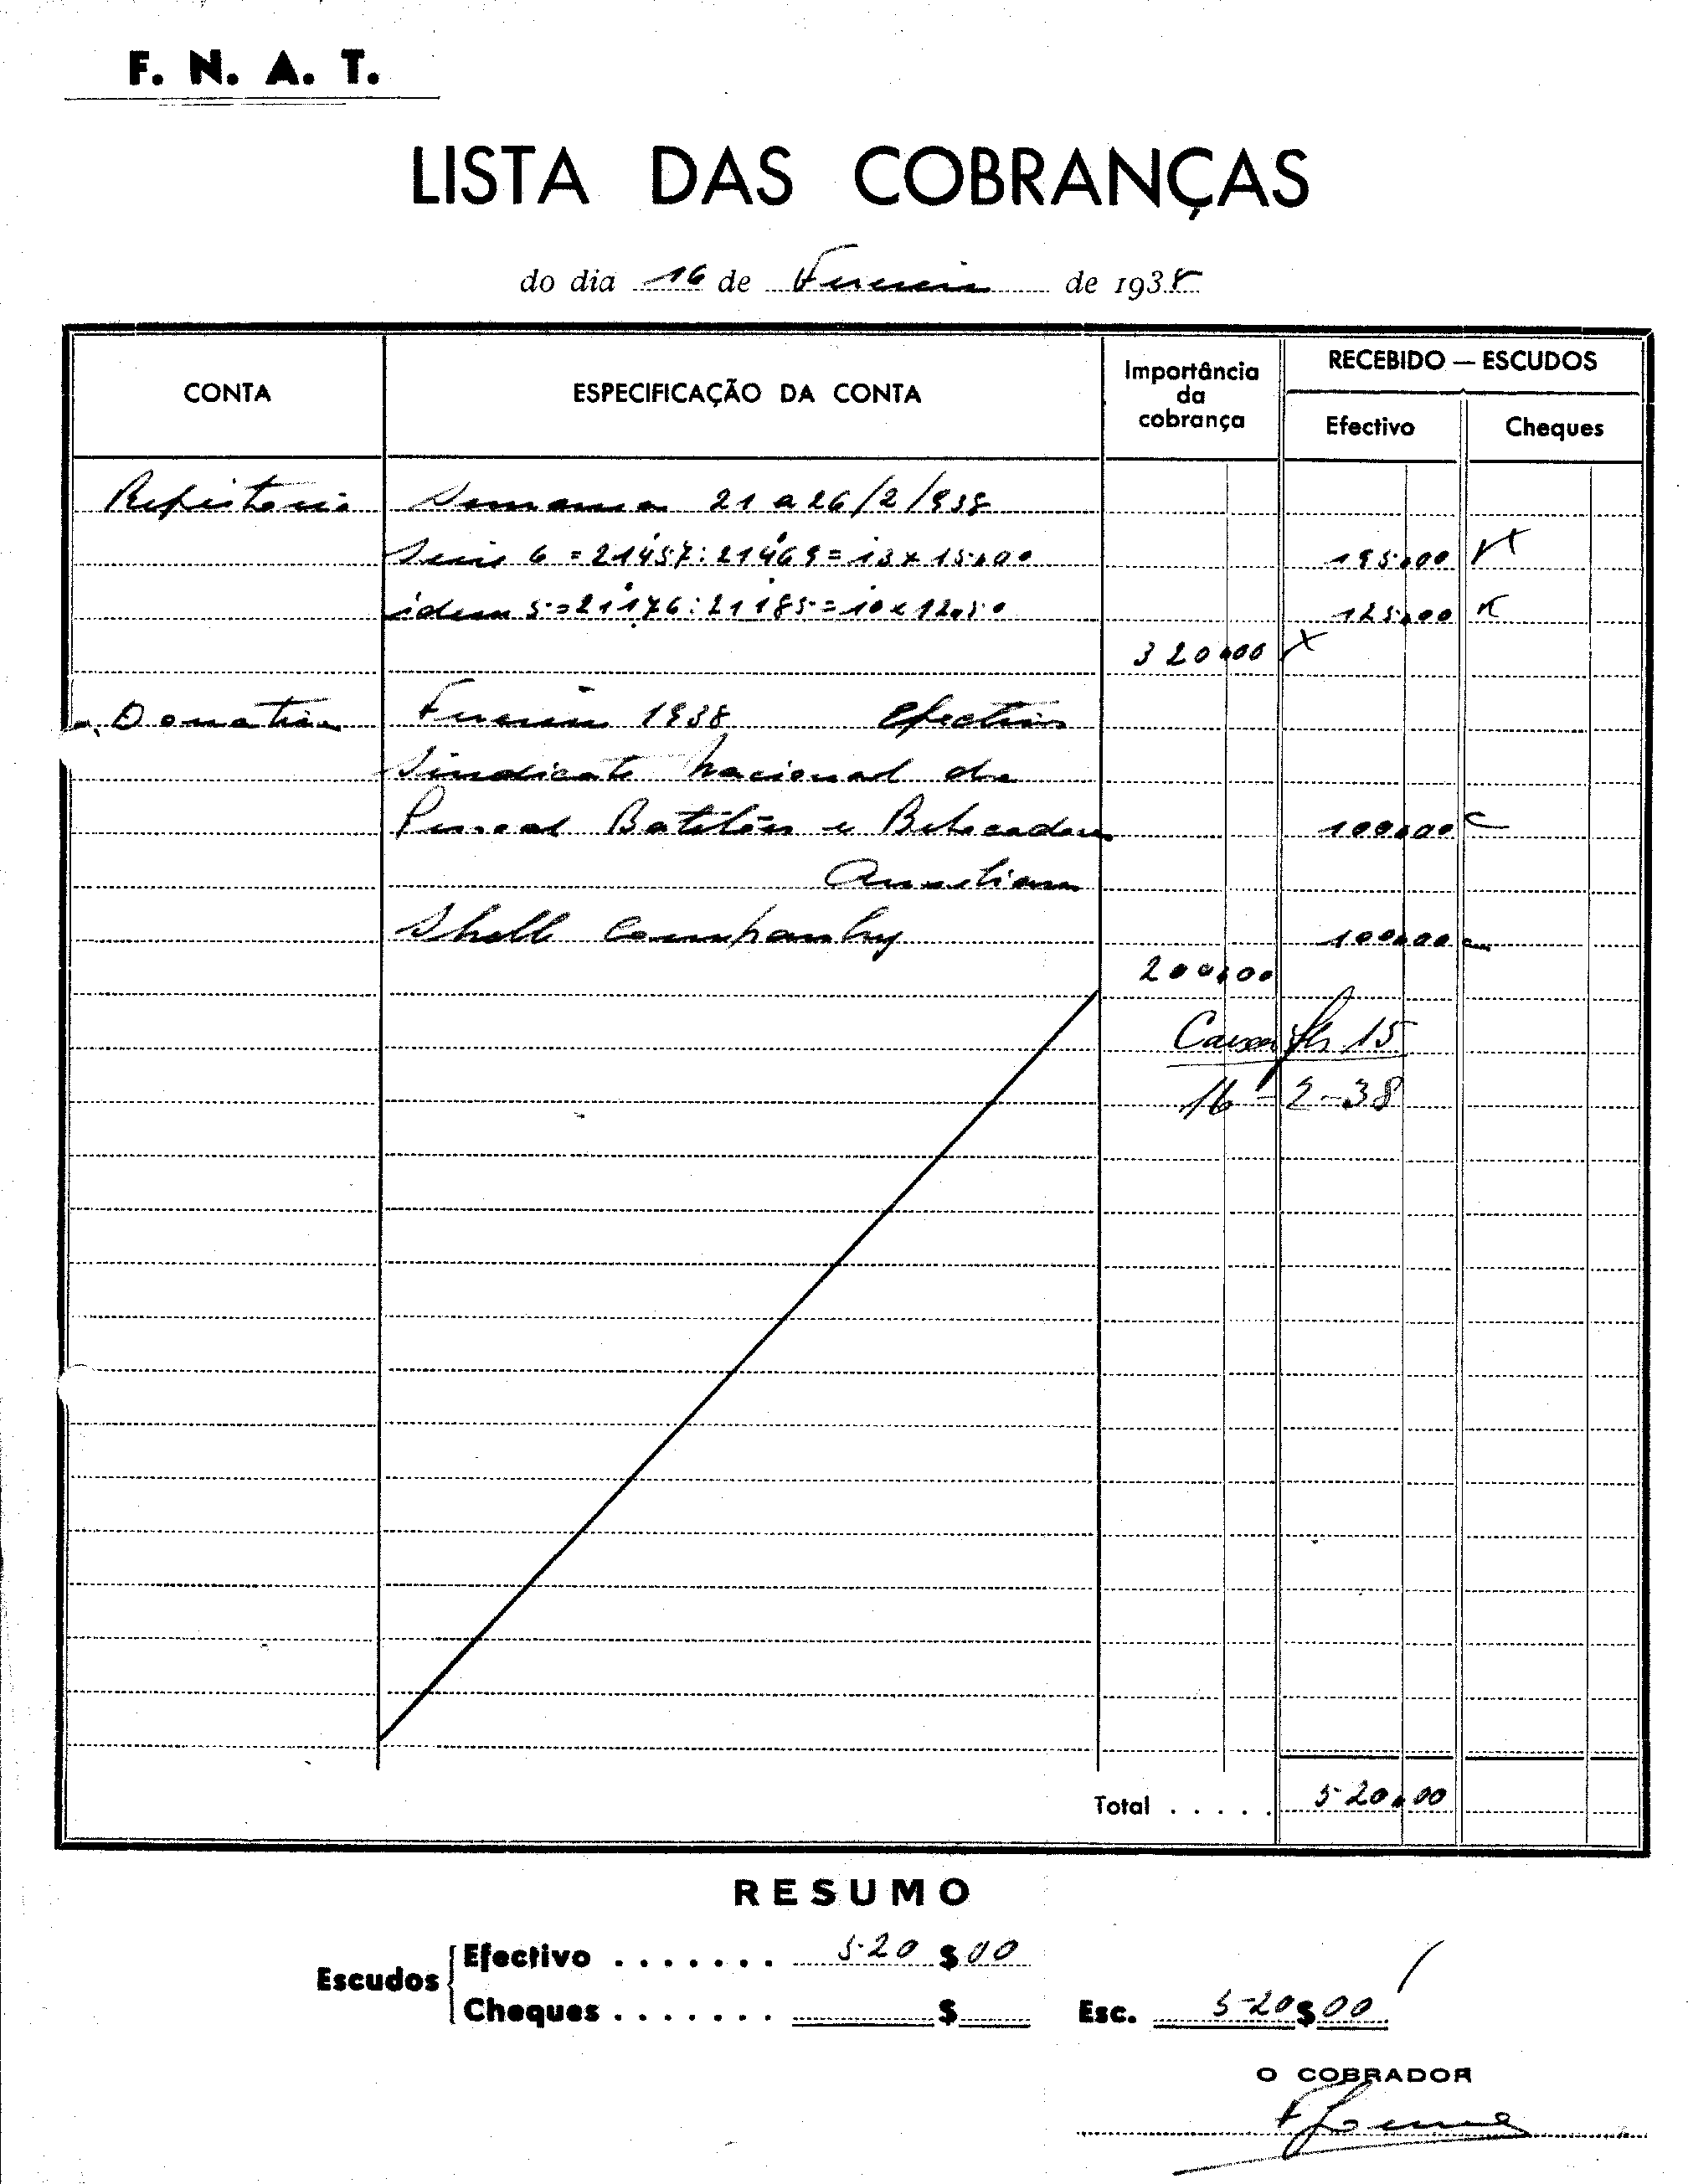 F. N. A. T.
LISTA DAS COBRANÇAS
do dia 16 de de 1938
CONTA ESPECIFICAÇÃO DA CONTA Importância da cobrança RECEBIDO — ESCUDOS
Efectivo Cheques
Semana 21 a 26/2/938
Serie 6 = 21457:21469 = 13 x 15,00 195,00
idem 5 = 21176:21185 = 10 x 12,50 125,00
320,00
1938 Efectivos
Sindicato Nacional do
Pessoal 100,00
Shell 100,00
200,00
Caixa fls 15
16-2-38
Total . . . . . 520,00
RESUMO
Escudos Efectivo . . . . . . . 520 $ 00
Cheques . . . . . . . $ Esc. 520 $ 00
O COBRADOR